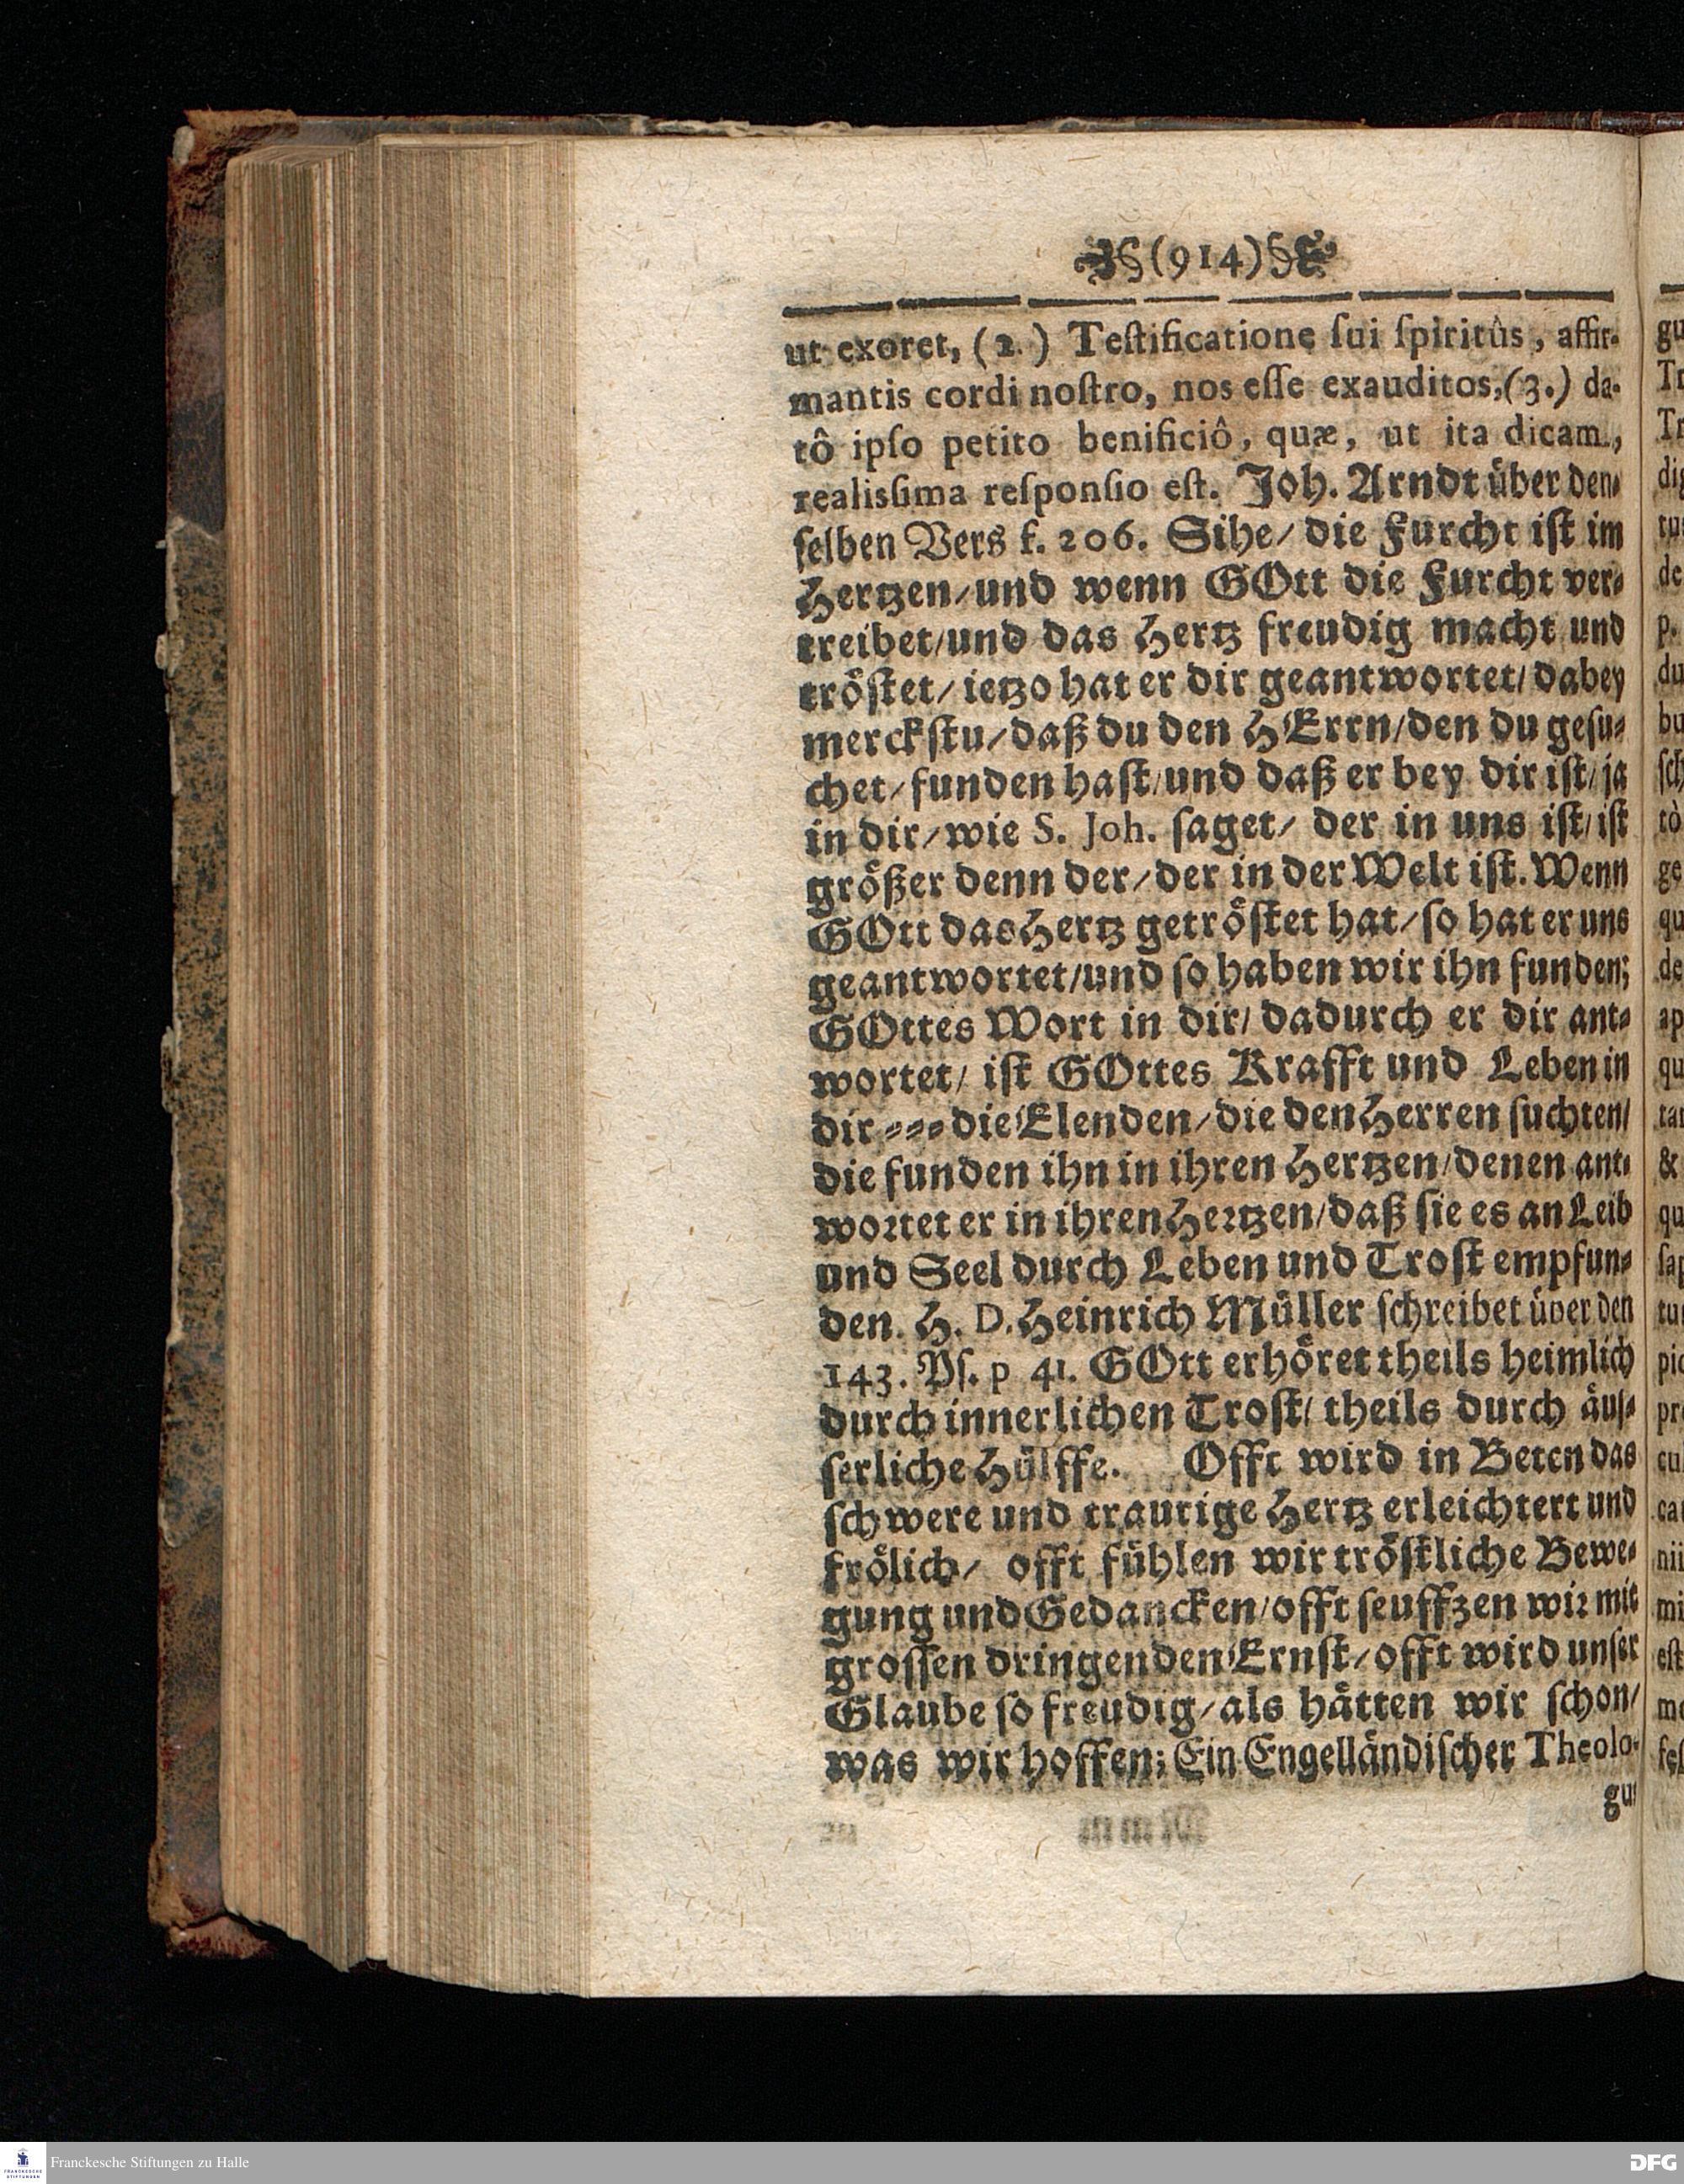 §(914)§
ut exoret, (2.) Teſtificatione ſui ſpiritûs, affir-
mantis cordi noſtro, nos eſſe exauditos,(3.) da-
tô ipſo petito benificiô, quæ, ut ita dicam,
realisſima reſponſio eſt. Joh. Arndt über den-
ſelben Vers f. 206. Sihe/ die Furcht iſt im
Hertzen/und wenn GOtt die Furcht ver-
treibet/und das Hertz freudig macht und
tröſtet/ ietzo hat er dir geantwortet/ dabey
merckſtu/daß du den HErrn/den du geſu-
chet/funden haſt/und daß er bey dir iſt/ ja
in dir/wie S. Joh. ſaget/ der in uns iſt/ iſt
größer denn der/der in der Welt iſt. Wenn
GOtt das Hertz getröſtet hat/ſo hat er uns
geantwortet/und ſo haben wir ihn funden;
GOttes Wort in dir/ dadurch er dir ant-
wortet/ iſt GOttes Krafft und Leben in
dir - - - die Elenden/die den Herren ſuchten/
die funden ihn in ihren Hertzen/denen ant-
wortet er in ihren Hertzen/daß ſie es an Leib
und Seel durch Leben und Troſt empfun-
den. H. D. Heinrich Müller ſchreibet über den
143. Pſ. p 41. GOtt erhöret theils heimlich
durch innerlichen Troſt/ theils durch äuſ-
ſerliche Hülffe. Offt wird in Beten das
ſchwere und traurige Hertz erleichtert und
frölich/ offt fühlen wir tröſtliche Bewe-
gung und Gedancken/offt ſeuffzen wir mit
groſſen dringenden Ernſt/offt wird unſer
Glaube ſo freudig/als hätten wir ſchon/
was wir hoffen; Ein Engelländiſcher Theolo-
gus
Franckesche Stiftungen zu Halle
DFG